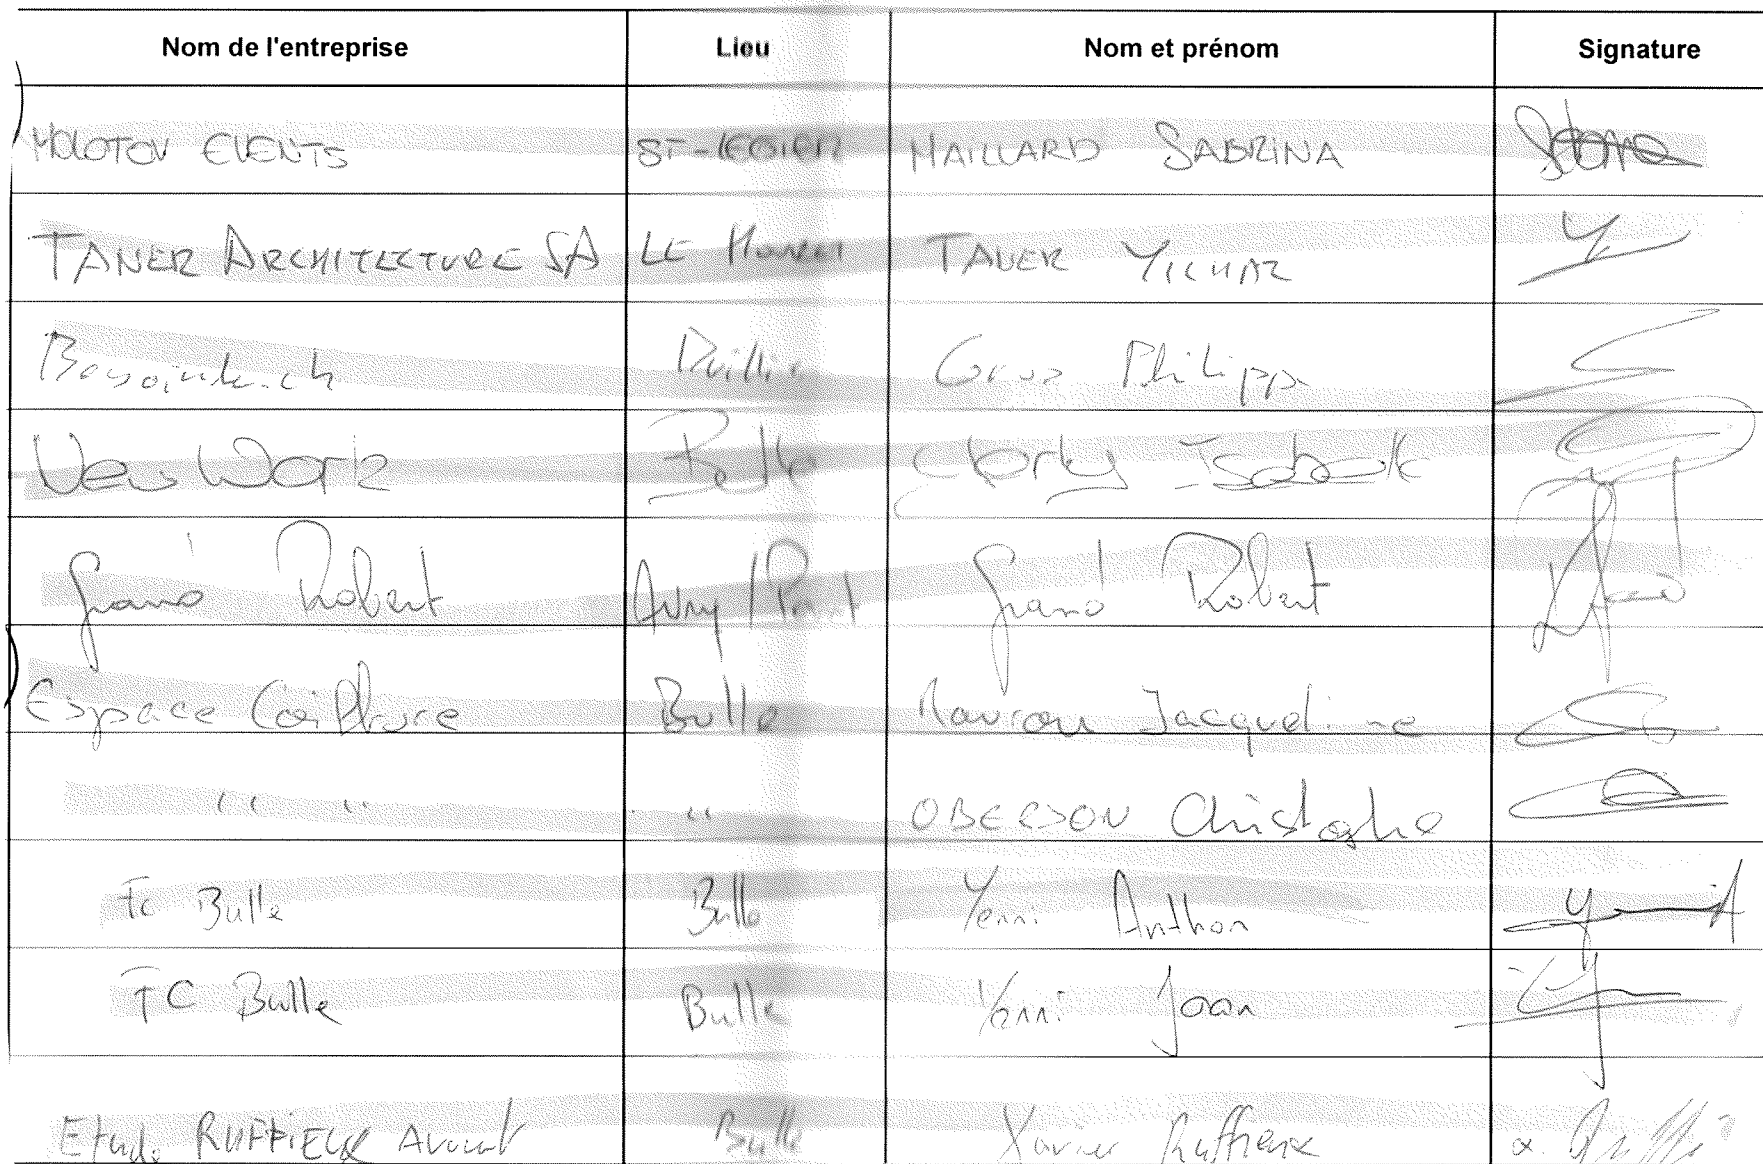 Nom de l'entreprise Lieu Nom et prénom Signature
MOLOTOV EVENTS ST-LEGIER MAILLARD SABRINA
TANER ARCHITECTURE SA LE Mouret TANER YILMAZ
Philippe
New Work Bulle Isabelle
Grand Robert Avry Grand Robert
Espace Coiffure Bulle Jacqueline
" " " OBERSON Christophe
Fc Bulle Bulle Yenni Anthon
FC Bulle Bulle Yenni Joan
Etude RUFFIEUX Avocat Bulle Xavier Ruffieux